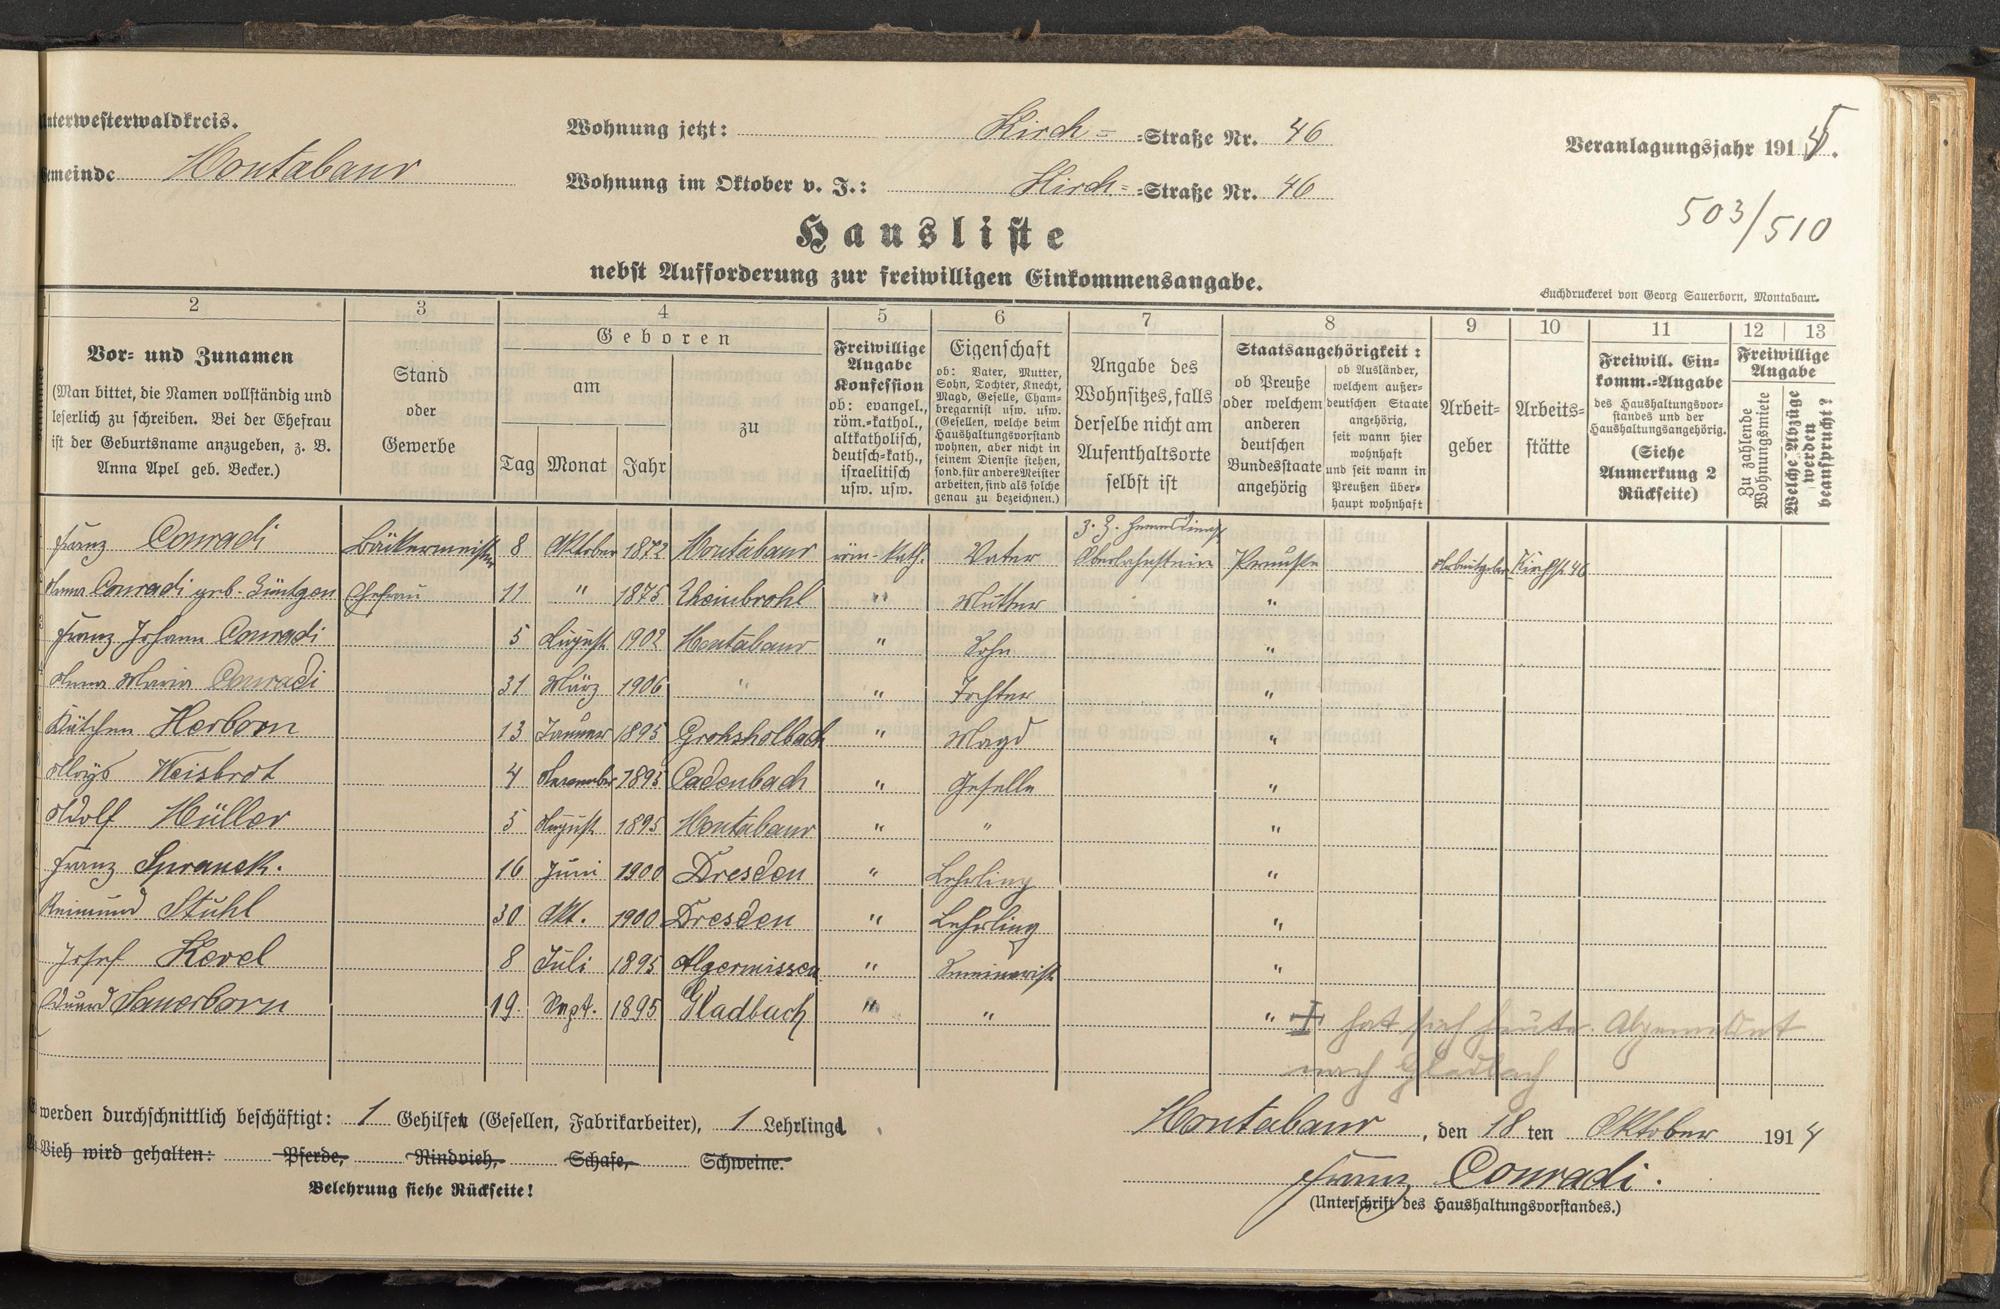 Unterwesterwaldkreis.
Gemeinde Montabaur
Wohnung jetzt: Kirch= =Straße Nr. 46
Wohnung im Oktober v. J.: Kirch= =Straße Nr. 46
Veranlagungsjahr 1915.
503/510
Hausliste
nebst Aufforderung zur freiwilligen Einkommensangabe.
Buchdruckerei von Georg Sauerborn, Montabaur.
2 3 4 5 6 7 8 9 10 11 12 13
Vor- und Zunamen
(Man bittet, die Namen vollständig und
leserlich zu schreiben. Bei der Ehefrau
ist der Geburtsname anzugeben, z. B.
Anna Apel geb. Becker.)
Stand
oder
Gewerbe
Geboren
am
zu
Tag Monat Jahr
Freiwillige
Angabe
Konfession
ob: evangel.,
röm.-kathol.,
altkatholisch,
deutsch-kath.,
israelitisch
usw. usw.
Eigenschaft
ob: Vater, Mutter,
Sohn, Tochter, Knecht,
Magd, Geselle, Cham-
bregarnist usw. usw.
(Gesellen, welche beim
Haushaltungsvorstand
wohnen, aber nicht in
seinem Dienste stehen,
sond. für andere Meister
arbeiten, sind als solche
genau zu bezeichnen.)
Angabe des
Wohnsitzes, falls
derselbe nicht am
Aufenthaltsorte
selbst ist
Staatsangehörigkeit:
ob Preuße
oder welchem
anderen
deutschen
Bundesstaate
angehörig
ob Ausländer,
welchem außer-
deutschen Staate
angehörig,
seit wann hier
wohnhaft
und seit wann in
Preußen über-
haupt wohnhaft
Arbeit-
geber
Arbeits-
stätte
Freiwill. Ein-
komm.-Angabe
des Haushaltungsvor-
standes und der
Haushaltungsangehörig.
(Siehe
Anmerkung 2
Rückseite)
Freiwillige
Angabe
Zu zahlende
Wohnungsmiete
Welche Abzüge
werden
beansprucht?
Franz Conradi Bäckermeister 8 Oktober 1872 Montabaur röm-kath. Vater z. Z. Heeresdienst Oberlahnstein Preuße Arbeitgeber Kirchst 46
Anna Conradi geb. Lüntgen Ehefrau 11 " 1875 Rheinbrohl " Mutter "
Franz Johann Conradi 5 August 1902 Montabaur " Sohn "
Anna Maria Conradi 31 März 1906 " " Tochter "
Kätchen Herborn 13 Januar 1895 Großholbach " Magd "
Aloys Weisbrot 4 November 1895 Cadenbach " Geselle "
Adolf Müller 5 August 1895 Montabaur " " "
Franz Spranek. 16 Juni 1900 Dresden " Lehrling "
Reimund Stuhl 30 Okt. 1900 Dresden " Lehrling "
Josef Kevel 8 Juli 1895 Algermissen " Seminarist "
Eduard Sauerborn 19. Sept. 1895 Gladbach " " " + hat sich heute abgemeldet
nach Gladbach
werden durchschnittlich beschäftigt: 1 Gehilfen (Gesellen, Fabrikarbeiter), 1 Lehrlinge
Vieh wird gehalten: Pferde, Rindvieh, Schafe, Schweine.
Belehrung siehe Rückseite!
Montabaur, den 18 ten Oktober 1914
Franz Conradi.
(Unterschrift des Haushaltungsvorstandes.)